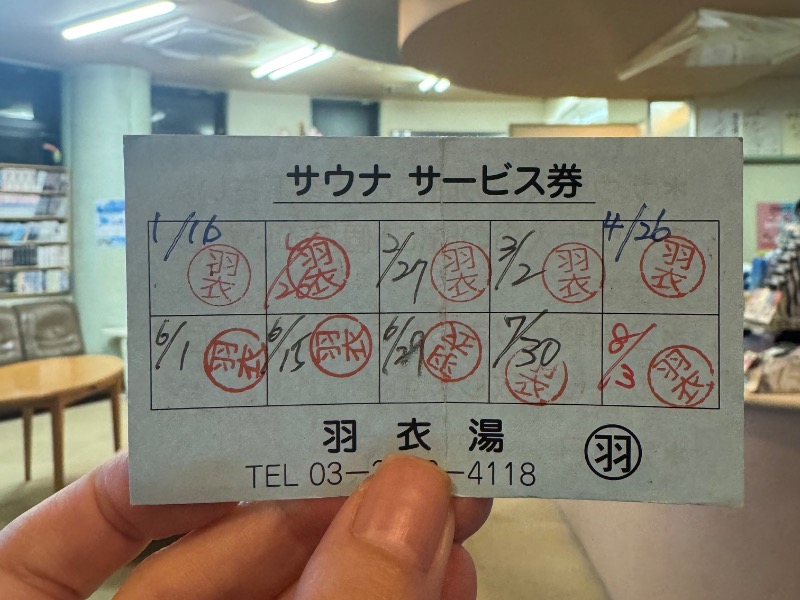 サウナ サービス券
1/16 羽衣 1/26 羽衣 2/27 羽衣 3/2 羽衣 4/26 羽衣
6/1 羽衣 6/15 羽衣 6/29 羽衣 7/30 羽衣 8/3 羽衣
羽衣湯 羽
TEL 03- -4118